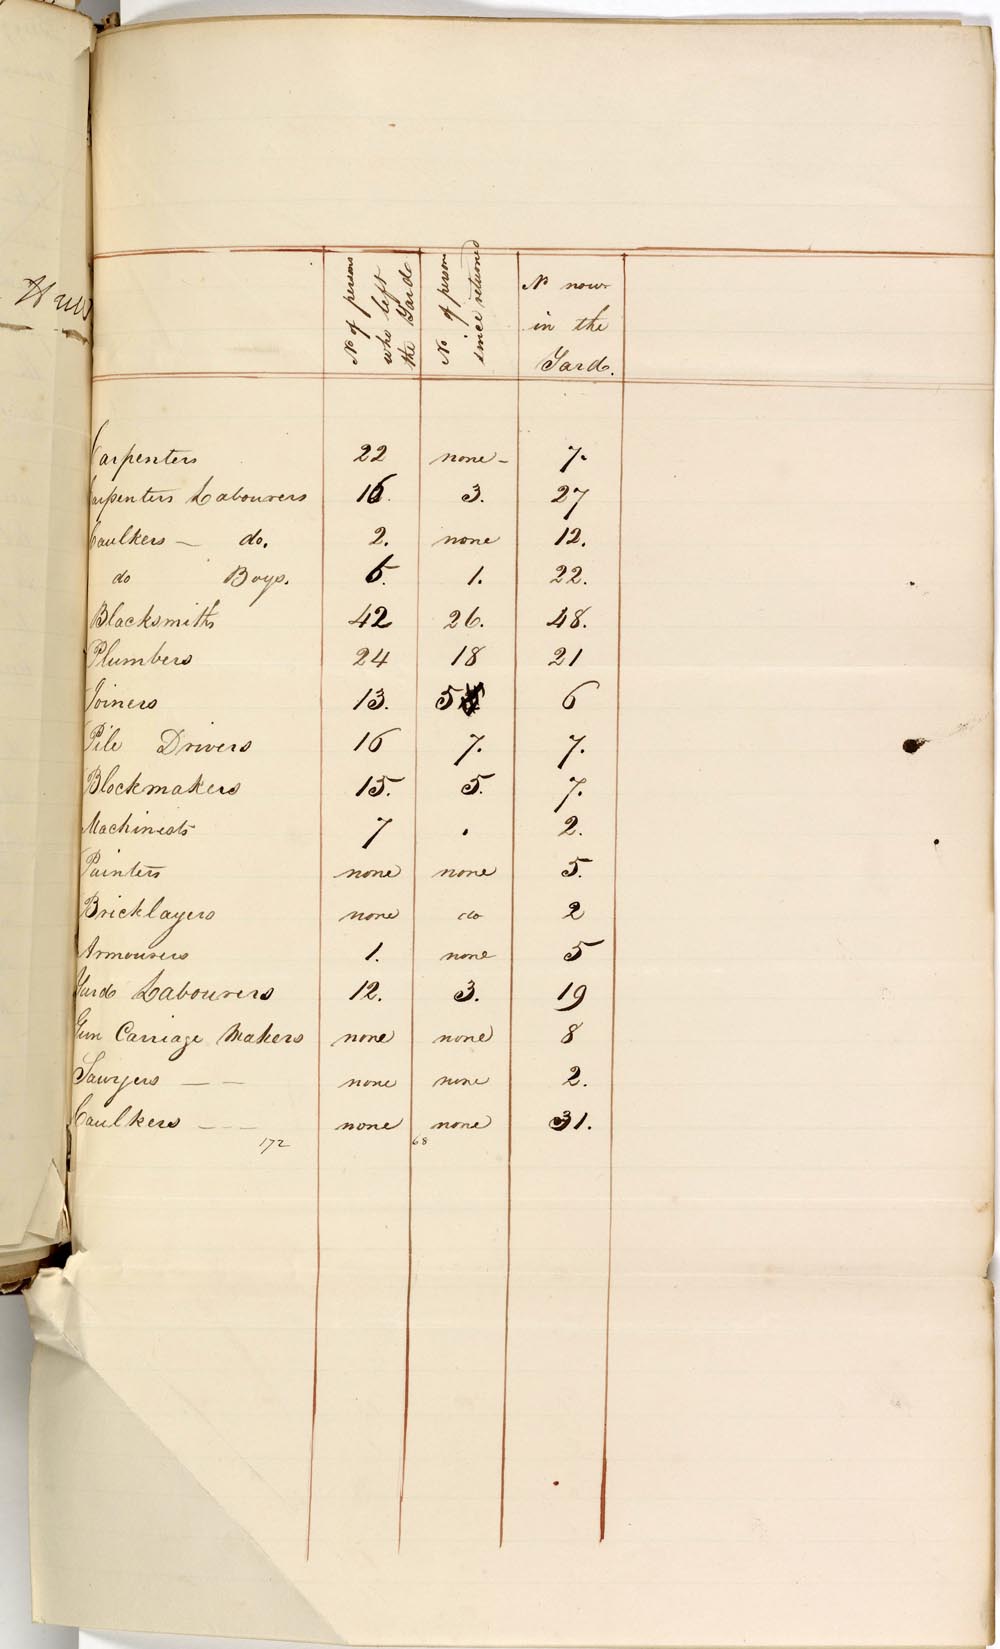 No of persons who left the Yard
No of person since returned
No now in the Yard.
Carpenters 22 none 7.
Carpenters Labourers 16. 3. 27
Caulkers — do. 2. none 12.
do Boys. 1. 22.
Blacksmiths 42 26. 48.
Plumbers 24 18 21
Joiners 13. 5 6
Pile Drivers 16 7. 7.
Blockmakers 15. 5. 7.
Machinists 7 . 2.
Painters none none 5.
Bricklayers none do 2
Armourers 1. none 5
Yard Labourers 12. 3. 19
Gun Carriage Makers none none 8
Sawyers — — none none 2.
Caulkers — — none none 31.
172 68